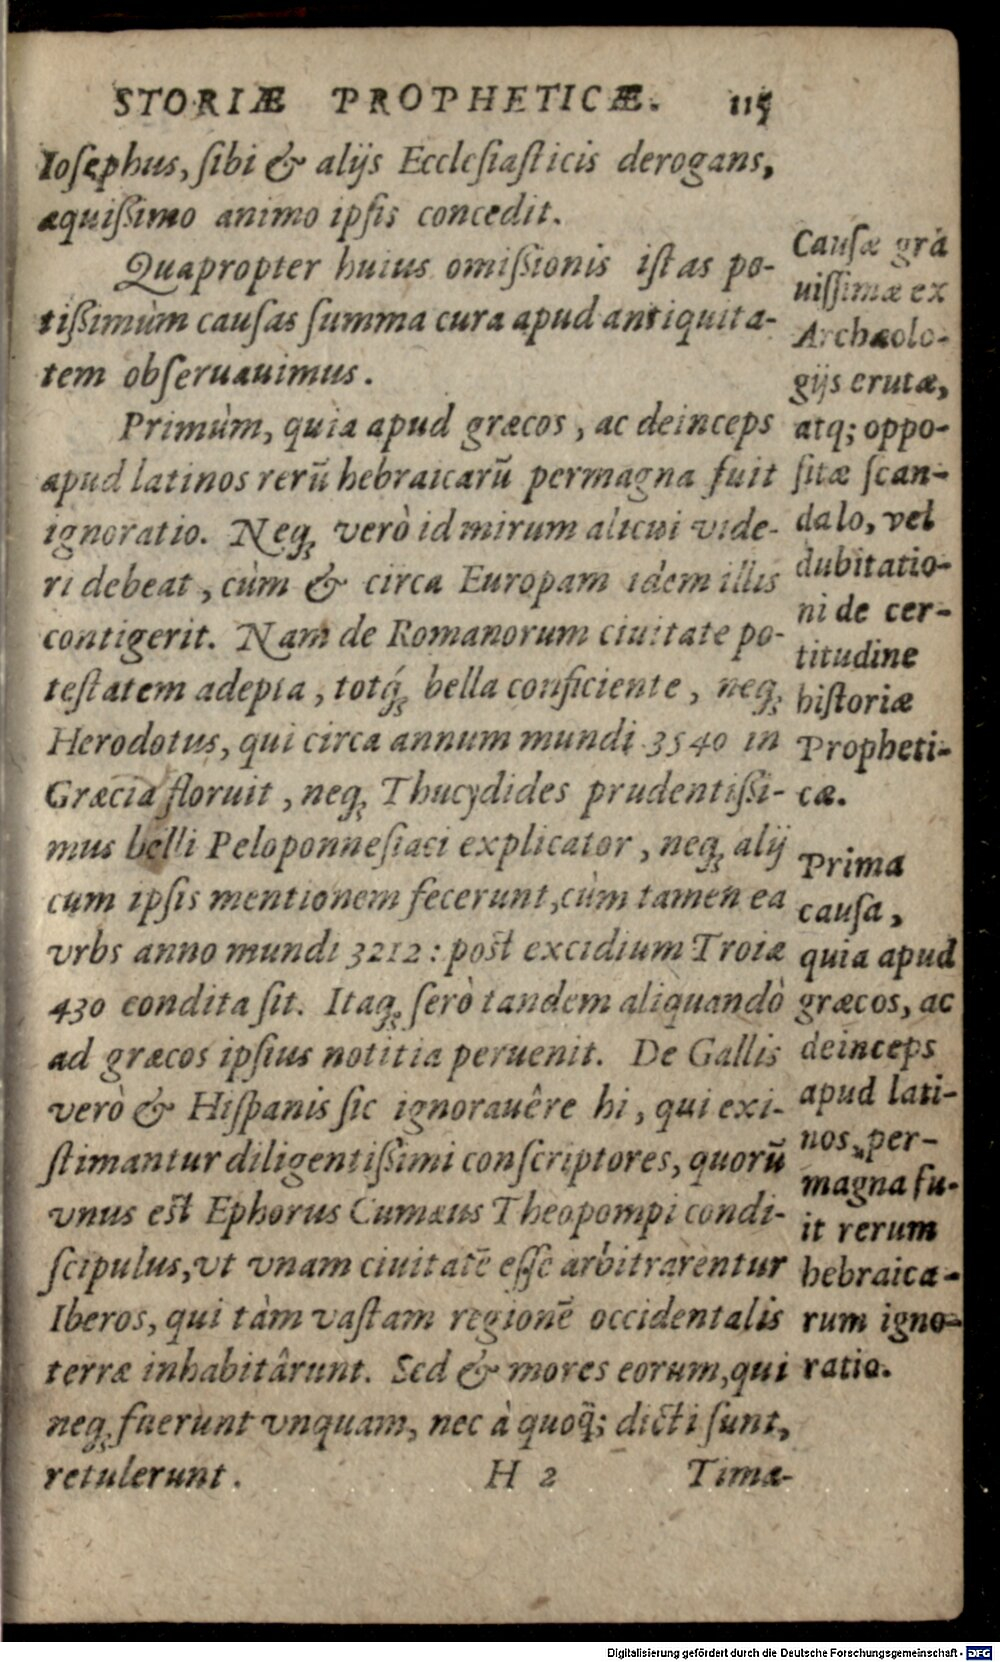 STORIÆ PROPHETICÆ. 115
Ioſephus, ſibi & alijs Eccleſiaſticis derogans,
æquißimo animo ipſis concedit.
Quapropter huius omißionis iſtas po-
tißimùm cauſas ſumma cura apud antiquita-
tem obſeruauimus.
Primùm, quia apud græcos, ac deinceps
apud latinos rerū hebraicarū permagna fuit
ignoratio. Neq; verò id mirum alicui vide-
ri debeat, cùm & circa Europam idem illis
contigerit. Nam de Romanorum ciuitate po-
teſtatem adepta, totq́; bella conficiente, neq;
Herodotus, qui circa annum mundi 3540 in
Græcia floruit, neq; Thucydides prudentißi-
mus belli Peloponneſiaci explicator, neq; alij
cum ipſis mentionem fecerunt, cùm tamen ea
vrbs anno mundi 3212: poſt excidium Troiæ
430 condita ſit. Itaq; ſerò tandem aliquandò
ad græcos ipſius notitia peruenit. De Gallis
verò & Hiſpanis ſic ignorauêre hi, qui exi-
ſtimantur diligentißimi conſcriptores, quorū
vnus eſt Ephorus Cumæus Theopompi condi-
ſcipulus, vt vnam ciuitatē eſſe arbitrarentur
Iberos, qui tàm vaſtam regionē occidentalis
terræ inhabitârunt. Sed & mores eorum, qui
neq; fuerunt vnquam, nec à quoq̃; dicti ſunt,
retulerunt. H 2 Timæ-
Cauſæ gra
uiſſimæ ex
Archæolo-
gijs erutæ,
atq; oppo-
ſitæ ſcan-
dalo, vel
dubitatio-
ni de cer-
titudine
hiſtoriæ
Propheti-
cæ.
Prima
cauſa,
quia apud
græcos, ac
deinceps
apud lati-
nos, per-
magna fu-
it rerum
hebraica-
rum igno-
ratio.
Digitalisierung gefördert durch die Deutsche Forschungsgemeinschaft - DFG